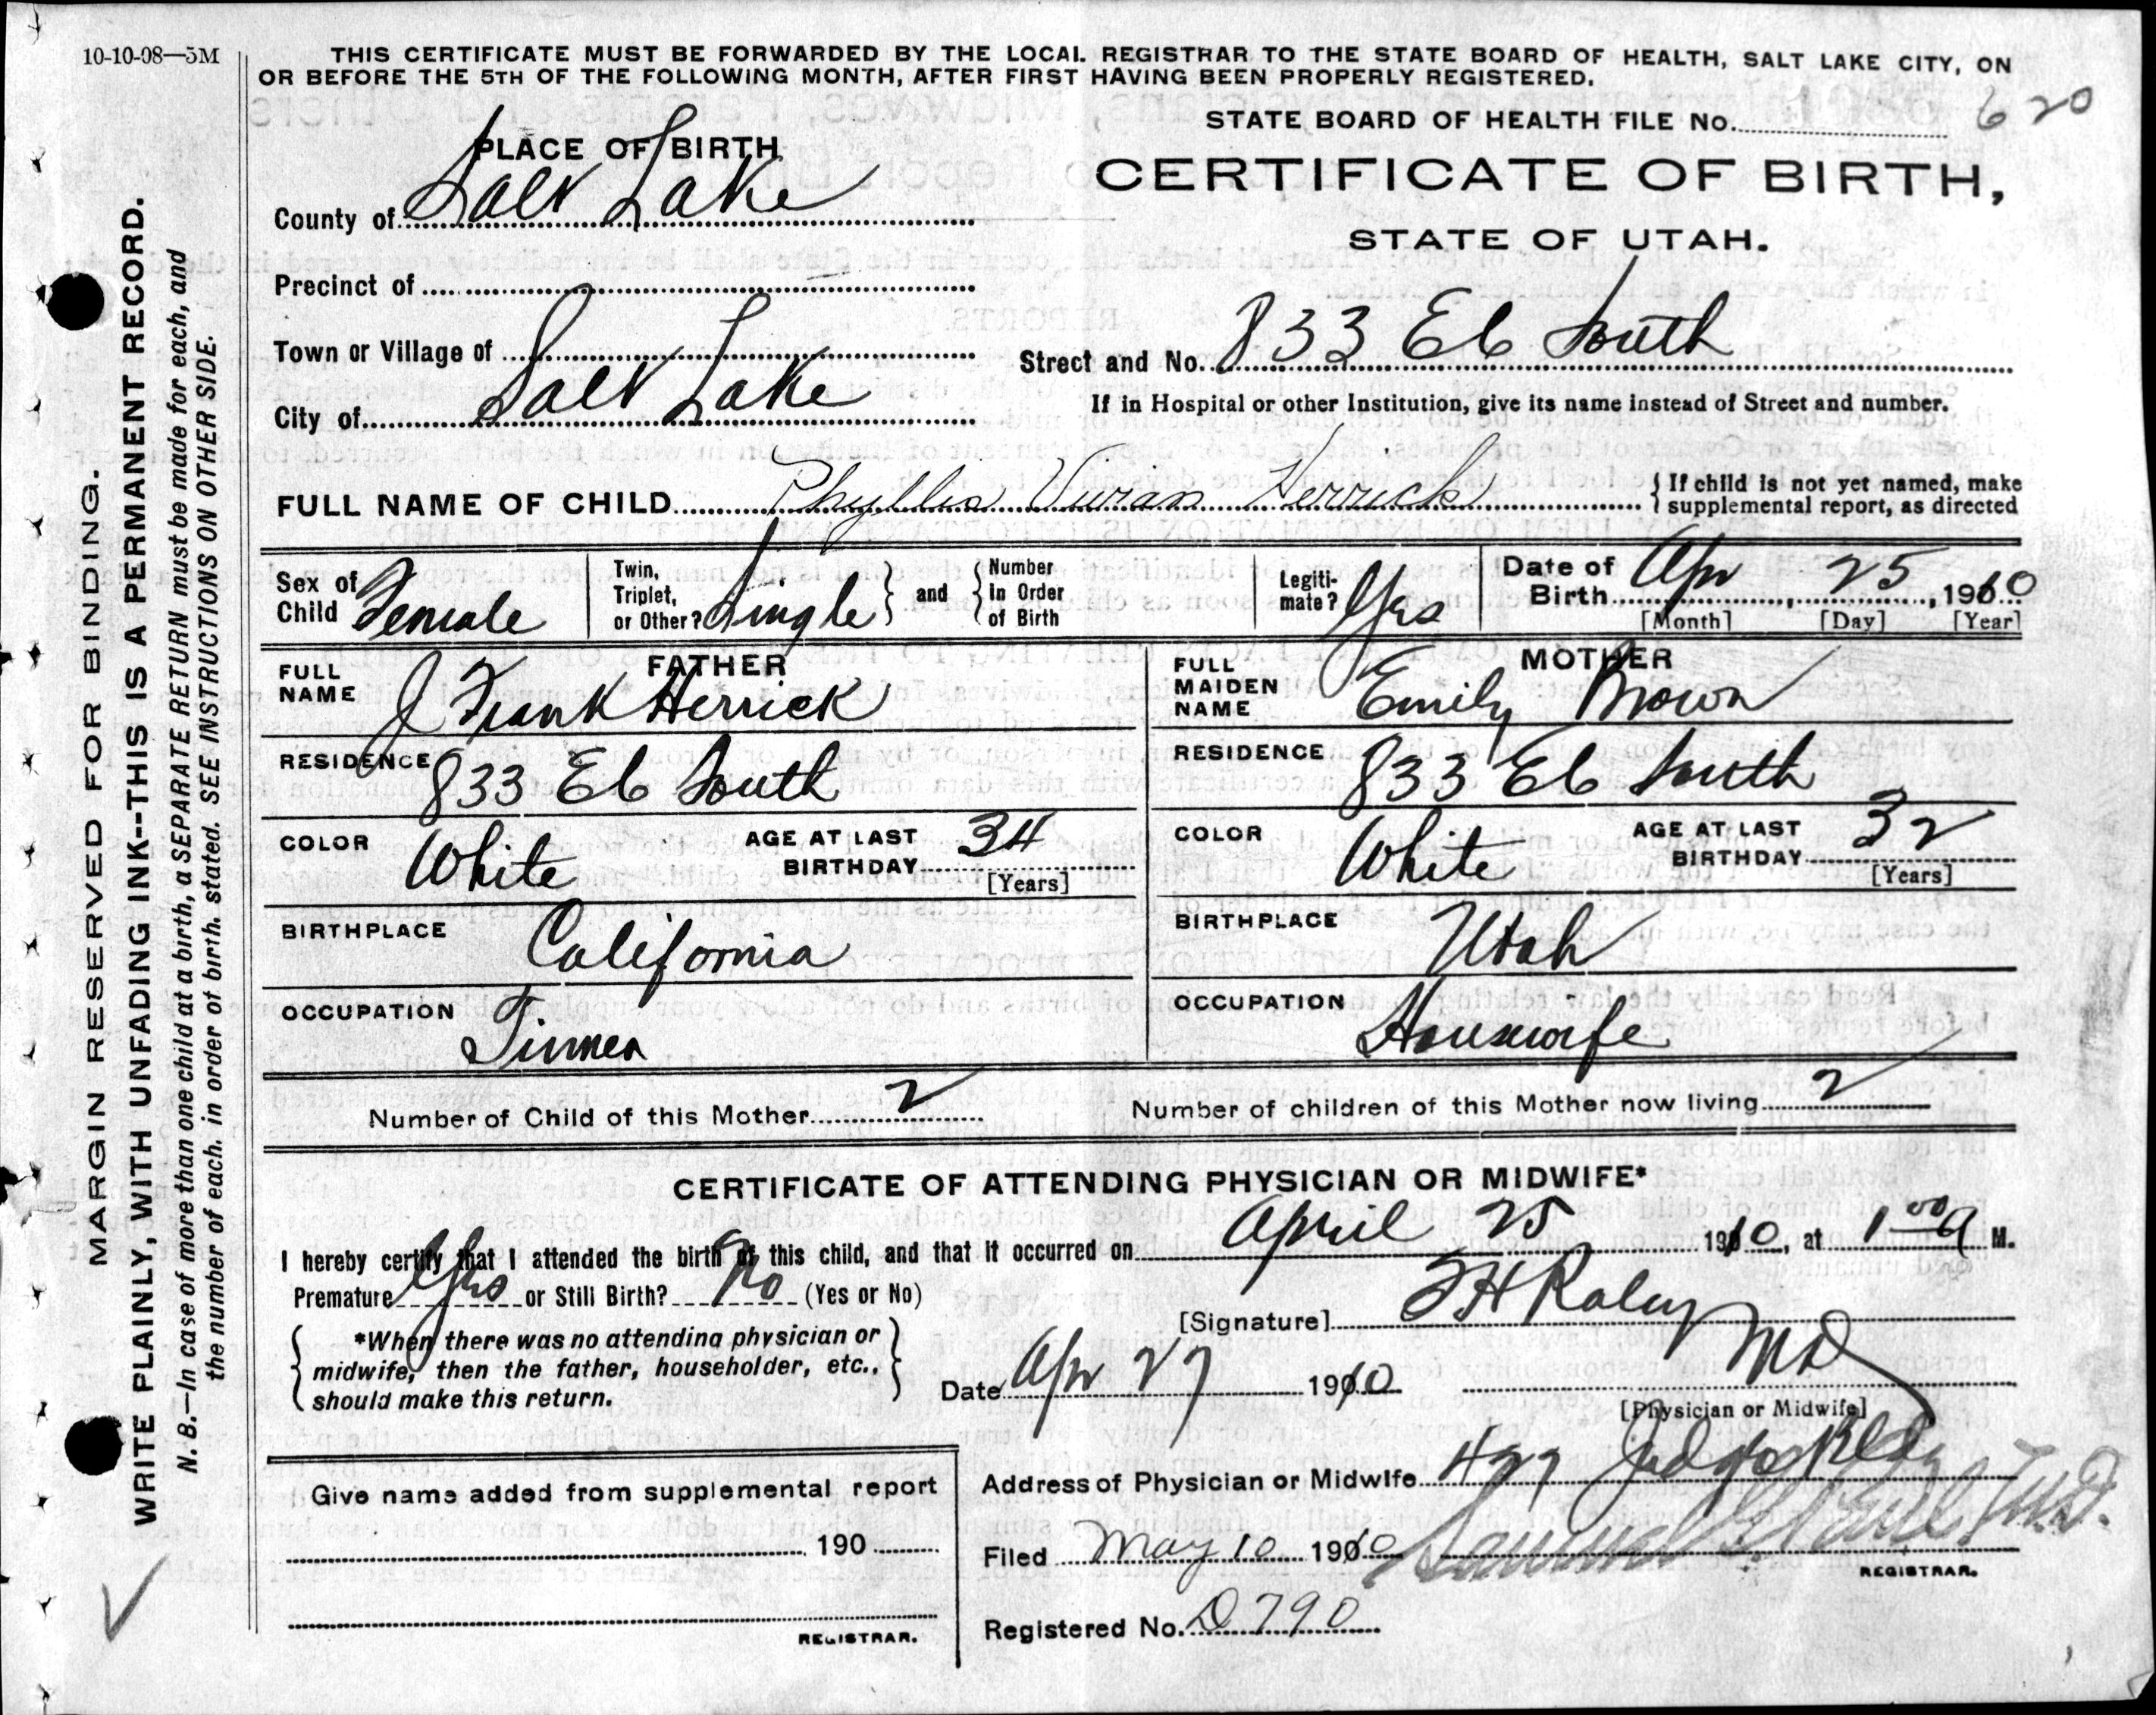 10-10-08—5M
THIS CERTIFICATE MUST BE FORWARDED BY THE LOCAL REGISTRAR TO THE STATE BOARD OF HEALTH, SALT LAKE CITY, ON
OR BEFORE THE 5TH OF THE FOLLOWING MONTH, AFTER FIRST HAVING BEEN PROPERLY REGISTERED.
STATE BOARD OF HEALTH FILE No. 620
CERTIFICATE OF BIRTH,
STATE OF UTAH.
PLACE OF BIRTH
County of Salt Lake
Precinct of
Town or Village of
City of Salt Lake
Street and No. 833 E 6 South
If in Hospital or other Institution, give its name instead of Street and number.
FULL NAME OF CHILD Phyllis Vivian Herrick
{ If child is not yet named, make
supplemental report, as directed
Sex of Child Female
Twin, Triplet, or Other? Single
and
Number In Order of Birth
Legiti-mate? Yes
Date of Birth Apr 25, 1910
[Month] [Day] [Year]
FATHER
FULL NAME J Frank Herrick
RESIDENCE 833 E 6 South
COLOR White
AGE AT LAST BIRTHDAY 34
[Years]
BIRTHPLACE California
OCCUPATION Tinner
MOTHER
FULL MAIDEN NAME Emily Brown
RESIDENCE 833 E 6 South
COLOR White
AGE AT LAST BIRTHDAY 32
[Years]
BIRTHPLACE Utah
OCCUPATION Housewife
Number of Child of this Mother 2
Number of children of this Mother now living 2
CERTIFICATE OF ATTENDING PHYSICIAN OR MIDWIFE*
I hereby certify that I attended the birth of this child, and that it occurred on April 25 1910, at 1 00 a M.
Premature Yes or Still Birth? No (Yes or No)
*When there was no attending physician or
midwife, then the father, householder, etc.,
should make this return.
[Signature] Raley MD
[Physician or Midwife]
Date Apr 27 1910
Address of Physician or Midwife 427 Judge Bldg
Filed May 10 1910
Samuel G Paul M.D.
REGISTRAR.
Registered No. D 790
Give name added from supplemental report
190
REGISTRAR.
MARGIN RESERVED FOR BINDING.
WRITE PLAINLY, WITH UNFADING INK--THIS IS A PERMANENT RECORD.
N. B.—In case of more than one child at a birth, a SEPARATE RETURN must be made for each, and
the number of each, in order of birth, stated. SEE INSTRUCTIONS ON OTHER SIDE.